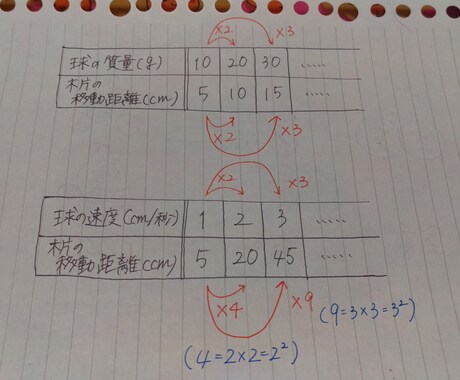 ×2 ×3
球の質量(g) 10 20 30 .....
木片の
移動距離(cm) 5 10 15 .....
×2 ×3
×2 ×3
球の速度(cm/秒) 1 2 3 .....
木片の
移動距離(cm) 5 20 45 .....
×4 ×9 (9=3×3=3²)
(4=2×2=2²)